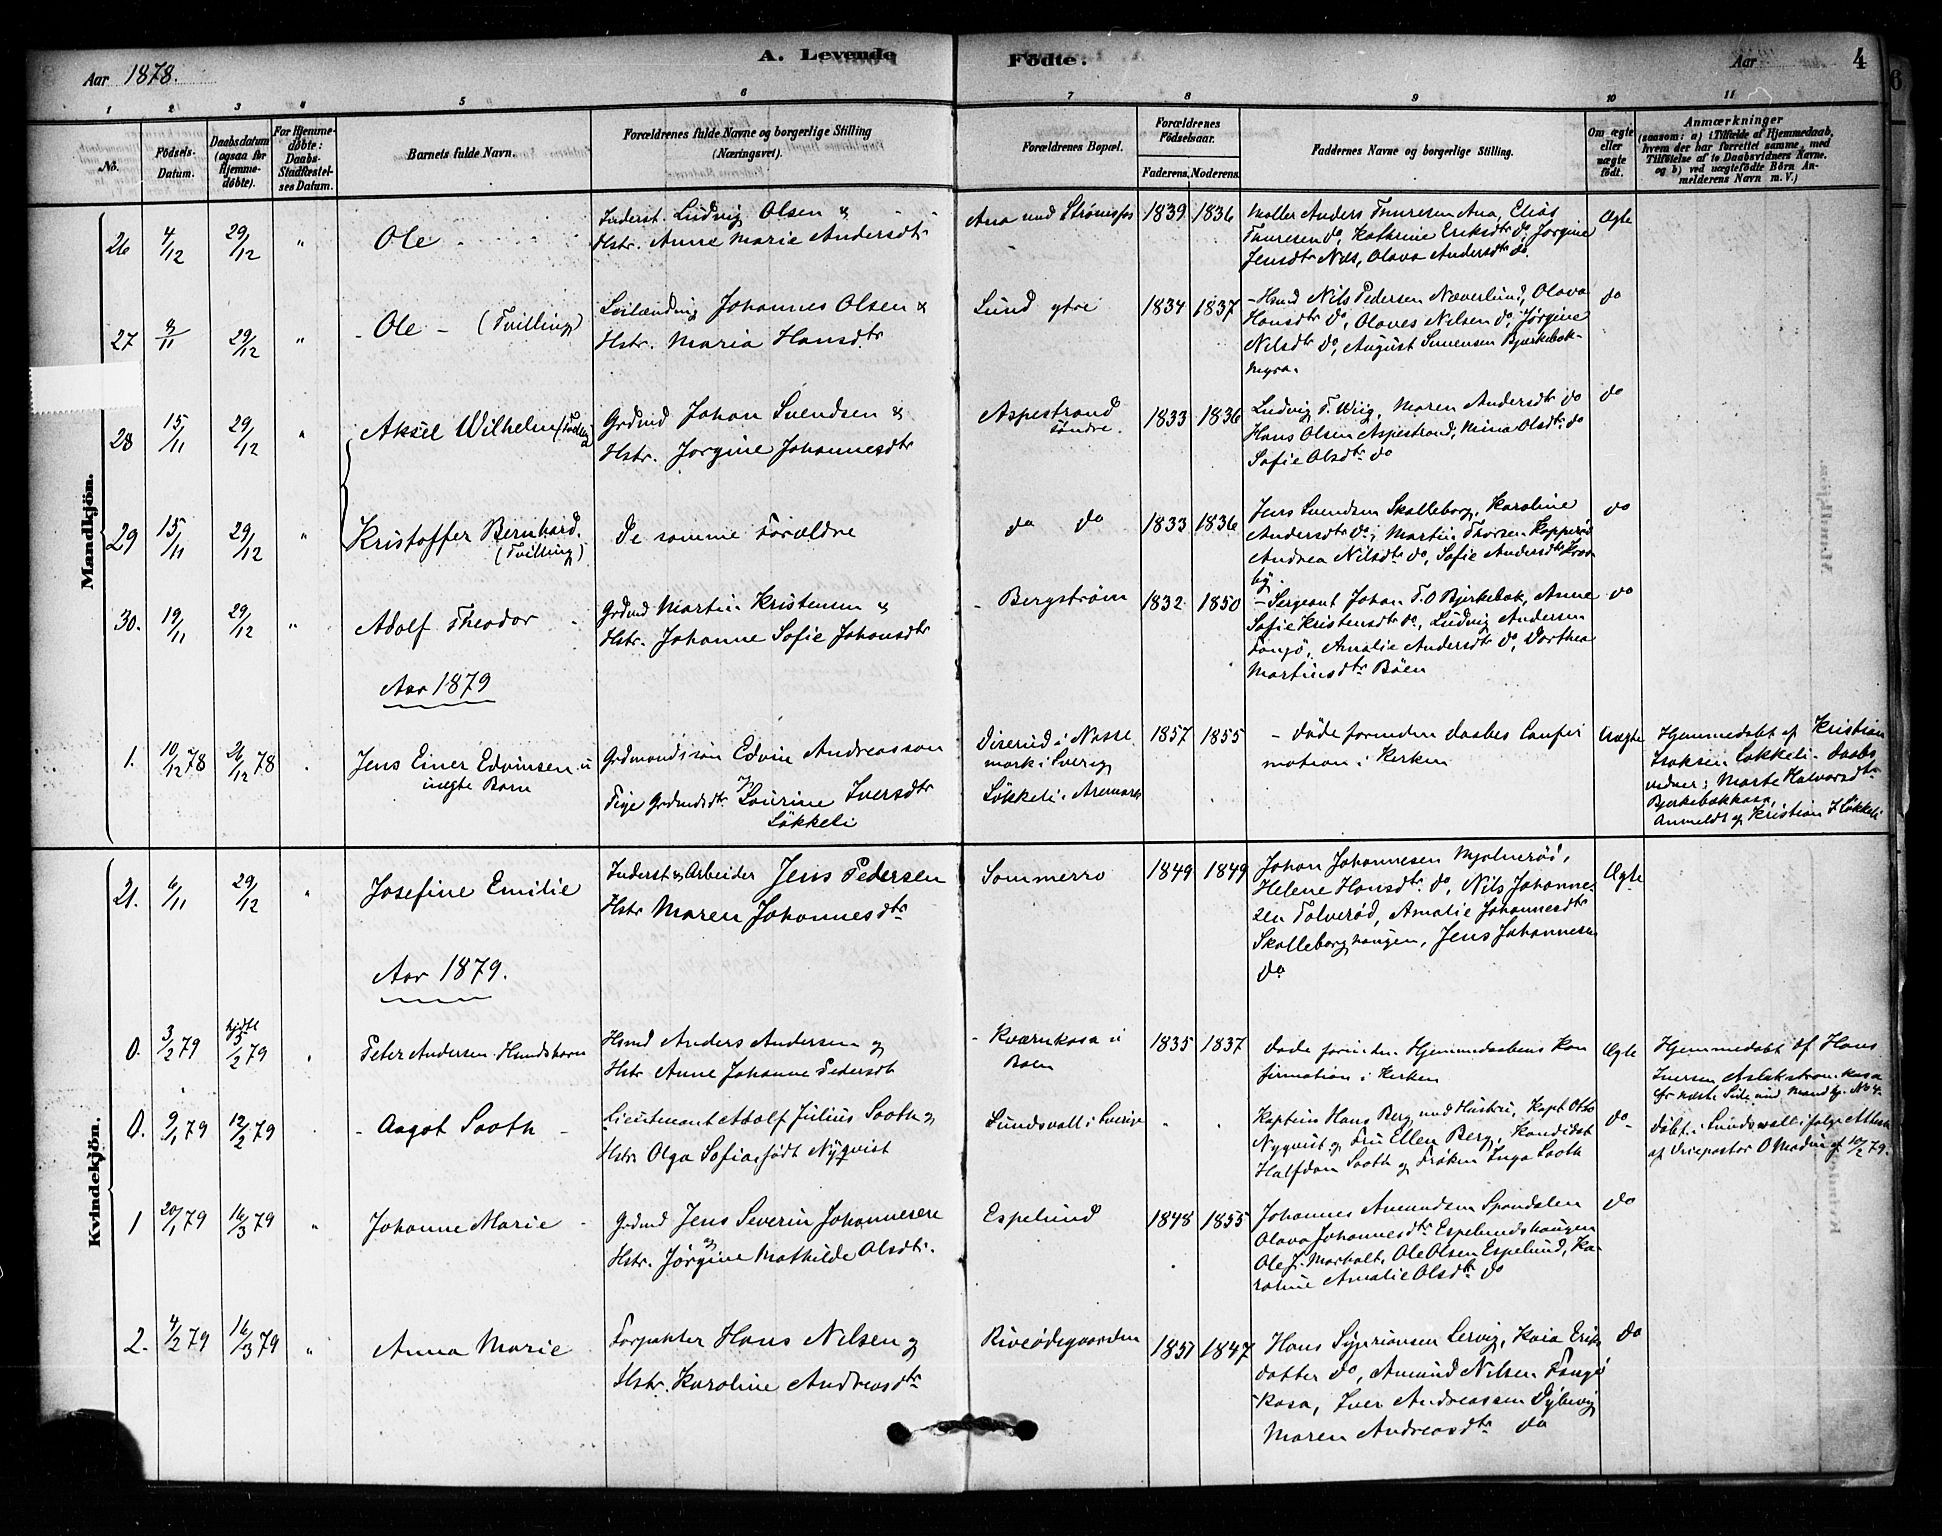 A. Levende Födte.
Aar 1878.
Aar
4
6
1 2 3 4 5 6 7 8 9 10 11
No.
Födsels-Datum.
Daabsdatum (ogsaa for Hjemmedøbte).
For Hjemmedøbte: Daabs-Stadfæstelses Datum.
Barnets fulde Navn.
Forældrenes fulde Navne og borgerlige Stilling (Næringsvei).
Forældrenes Bopæl.
Forældrenes Födselsaar.
Faderens. Moderens.
Faddernes Navne og borgerlige Stilling.
Om ægte eller uægte født.
Anmærkninger
(saasom: a) i Tilfælde af Hjemmedaab, hvem der har forrettet samme, med Tilföielse af to Daabsvidners Navne. og b) ved uægtefödte Börn Anmelderens Navn m. V.)
Mandkjön.
26 4/12 29/12 " Ole
Inderst. Ludvig Olsen &
Hstr. Anne Marie Andersdtr
Ara ved Strömsfos 1839 1836
Møller Anders Thuresen Ara, Elias
Thuresen do, Kathrine Eriksdtr do, Jørgine
Jensdtr Næs, Olava Andersdtr do.
Ægte
27 9/11 29/12 " Ole (Tvilling)
Johannes Olsen &
Hstr. Maria Hansdtr
Lund ytre 1834 1837
Hsmd Nils Pedersen Næverlund, Olava
Hansdtr do, Olaves Nilsen do, Jørgine
Nilsdtr do, August Simensen Bjørkebæk-
myra.
do
28 15/11 29/12 " Aksel Wilhelm (Tvilling)
Grdmd Johan Svendsen &
Hstr. Jørgine Johannesdtr
Aspestrand
søndre. 1833 1836
Ludvig T. Wiig, Maren Andersdtr do
Hans Olsen Aspestrand, Mina Olsdtr do
Sofie Olsdtr do
do
29 15/11 29/12 " Kristoffer Bernhard.
(Tvilling)
De samme Forældre
do do 1833 1836
Jens Svendsen Skalleborg, Karoline
Andersdtr do, Martin Thorsen
Andrea Nilsdtr do, Sofie Andersdtr
by.
do
30. 19/11 29/12 " Adolf Theodor
Grdmd Martin Kristensen &
Hstr. Johanne Sofie Johansdtr
Bergstrøm 1832 1850
Sergeant Johan T. O Bjerkebæk, Anne
Sofie Kristensdtr do, Ludvig Andersen
Tangø, Amalie Andersdtr do, Dorthea
Martinsdtr Bøen
do
Aar 1879
1. 10/12 78 26/12 78 Jens Einer Edvinsen
uægte Barn
Grdmandssøn Edvin Andreassøn
og
Pige Grdmdsdtr Laurine Iversdtr
Løkkeli
i Nøsse
mark i Sverig
Løkkeli i Aremark
1857 1855
døde forinden Daabes Confir
mation i Kirken
Uægte
Hjemmedøbt af Kristian
Isaksen Løkkeli. Daabs
vidner: Marte Halvorsdtr
Bjerkebækkasa,
Anmeldt af Kristian I Løkkeli
Kvindekjön.
21. 6/11 29/12 " Josefine Emilie
Inderst & Arbeider Jens Pedersen
Hstr Maren Johannesdtr
Sommerro 1849 1849
Johan Johannesen Mjølnerød,
Helene Hansdtr do, Nils Johanne-
sen Tolverød, Amalie Johannesdtr
Skalleborghaugen, Jens Johannesen
do
Ægte
Aar 1879.
0. 3/2 79 hjdbt 5/2 79 Peter Andersen Hundshorn
Hsmd Anders Andersen og
Hstr Anne Johanne Pedersdtr
Kværnkasa i
Bøen
1835 1837
døde forinden Hjemmedaabens Kon
firmation i Kirken
Ægte
Hjemmedøbt af Hans
Iversen
cfr næste Side und Mandkj. No 4.
0. 9/1 79 12/2 79 Aagot Sooth
Lieutenant Adolf Julius Sooth og
Hstr Olga Sofia, født Nyqvist
Sundsvall i Sverige
Kaptein Hans Berg med Hustru, Kapt Otto
Nyqvist og Fru Ellen Berg, Kandidat
Halfdan Sooth og Frøken Inga Sooth
do
døbt i Sundsvall ifølge Attest
af Vicepastor O Modin af 10/2 79.
1 20/1 79 16/3 79 " Johanne Marie
Grdmd Jens Severin Johannesen
og
Hstr. Jørgine Mathilde Olsdtr.
Espelund 1848 1855
Johannes Amundsen Spondalen
Olava Johannesdtr Espelundshaugen
Ole J. Marholt, Ole Olsen Espelund, Ka-
roline Amalie Olsdtr do
do
2. 4/2 79 16/3 79 " Anna Marie
Forpakter Hans Nilsen og
Hstr. Karoline Andreasdtr
Riveødegaarden 1851 1847
Hans Lervig, Kaia Eriks
datter do, Amund Nilsen Tangø
kasa, Iver Andreassen Dybevig
Maren Andreasdtr do
do